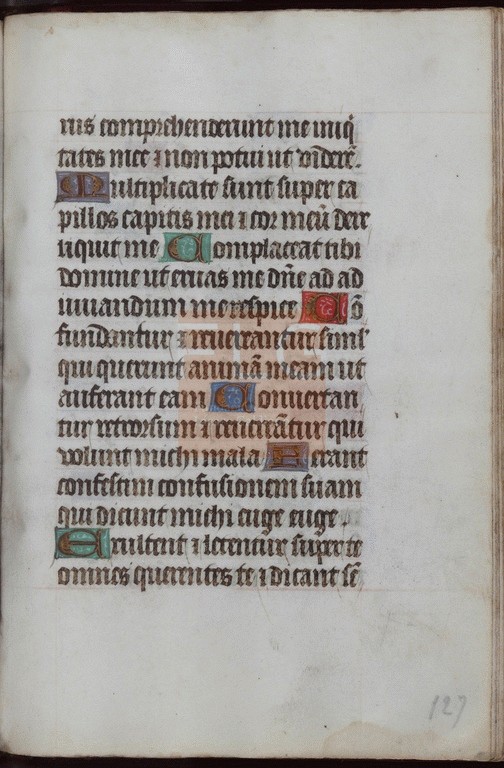 rus comprehenderunt me iniq̃
tates mee ⁊ non potui ut viderẽ.
Multiplicate sunt super ca
pillos capitis mei ⁊ cor meũ dere
liquit me Complaceat tibi
domine ut eruas me dñe ad ad
iuuandum me respice Cõ
fundantur ⁊ reuereantur simĺ
qui querunt animã meam ut
auferant eam Conuertan
tur retrorsum ⁊ reuereãtur qui
volunt michi mala Ferant
confestim confusionem suam
qui dicunt michi euge euge.
Exultent ⁊ letentur super te
omnes querentes te ⁊ dicant sẽ
127